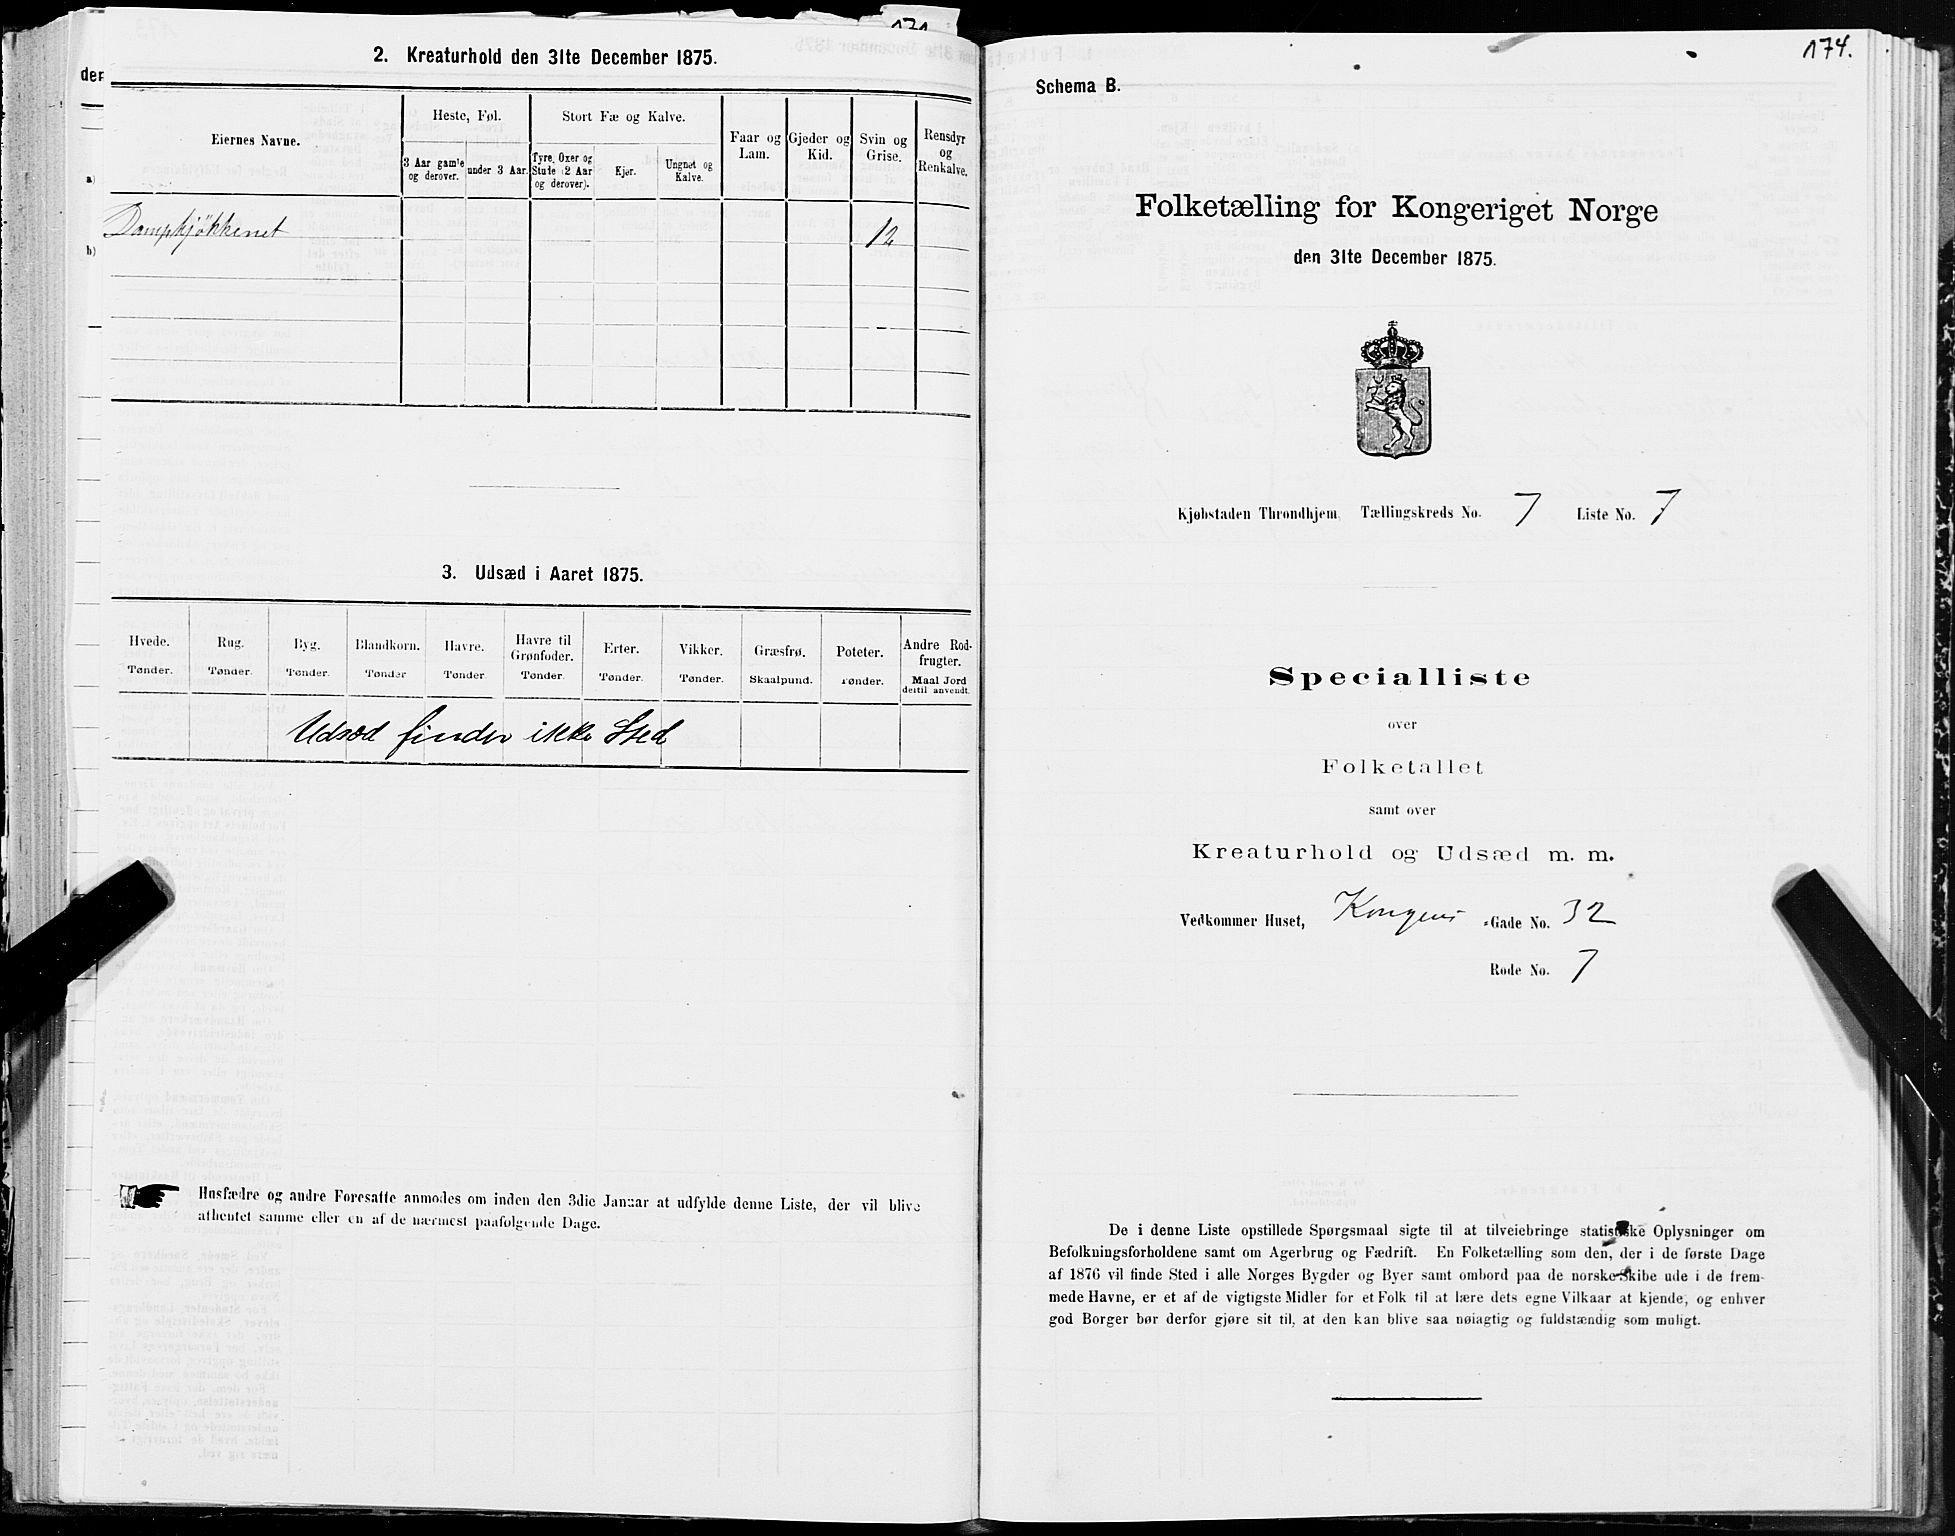 171.
2. Kreaturhold den 31te December 1875.
der
Eiernes Navne.
Heste, Føl.
Stort Fæ og Kalve.
Faar og Lam.
Gjeder og Kid.
Svin og Grise.
Rensdyr og Renkalve.
3 Aar gamle og derover.
under 3 Aar.
Tyre, Oxer og Stude (2 Aar og derover).
Kjør.
Ungnet og Kalve.
a)
b)
Dampkjøkkenet 12
3. Udsæd i Aaret 1875.
Hvede. Tønder.
Rug. Tønder.
Byg. Tønder.
Blandkorn. Tønder
Havre. Tønder.
Havre til Grønfoder. Tønder.
Erter. Tønder.
Vikker. Tønder.
Græsfrø. Skaalpund.
Poteter. Tønder.
Andre Rodfrugter. Maal Jord dertil anvendt.
Udsæd finder ikke Sted
Husfædre og andre Foresatte anmodes om inden den 3die Januar at udfylde denne Liste, der vil blive
afhentet samme eller en af de nærmest paafølgende Dage.
174.
Schema B.
Folketælling for Kongeriget Norge
den 31te December 1875.
Kjøbstaden Throndhjem, Tællingskreds No. 7 Liste No. 7
Specialliste
over
Folketallet
samt over
Kreaturhold og Udsæd m. m.
Vedkommer Huset, Kongens -Gade No. 32
Rode No. 7
De i denne Liste opstillede Spørgsmaal sigte til at tilveiebringe statistiske Oplysninger om
Befolkningsforholdene samt om Agerbrug og Fædrift. En Folketælling som den, der i de første Dage
af 1876 vil finde Sted i alle Norges Bygder og Byer samt ombord paa de norske Skibe ude i de frem-
mede Havne, er et af de vigtigste Midler for et Folk til at lære dets egne Vilkaar at kjende, og enhver
god Borger bør derfor gjøre sit til, at den kan blive saa nøiagtig og fuldstændig som muligt.